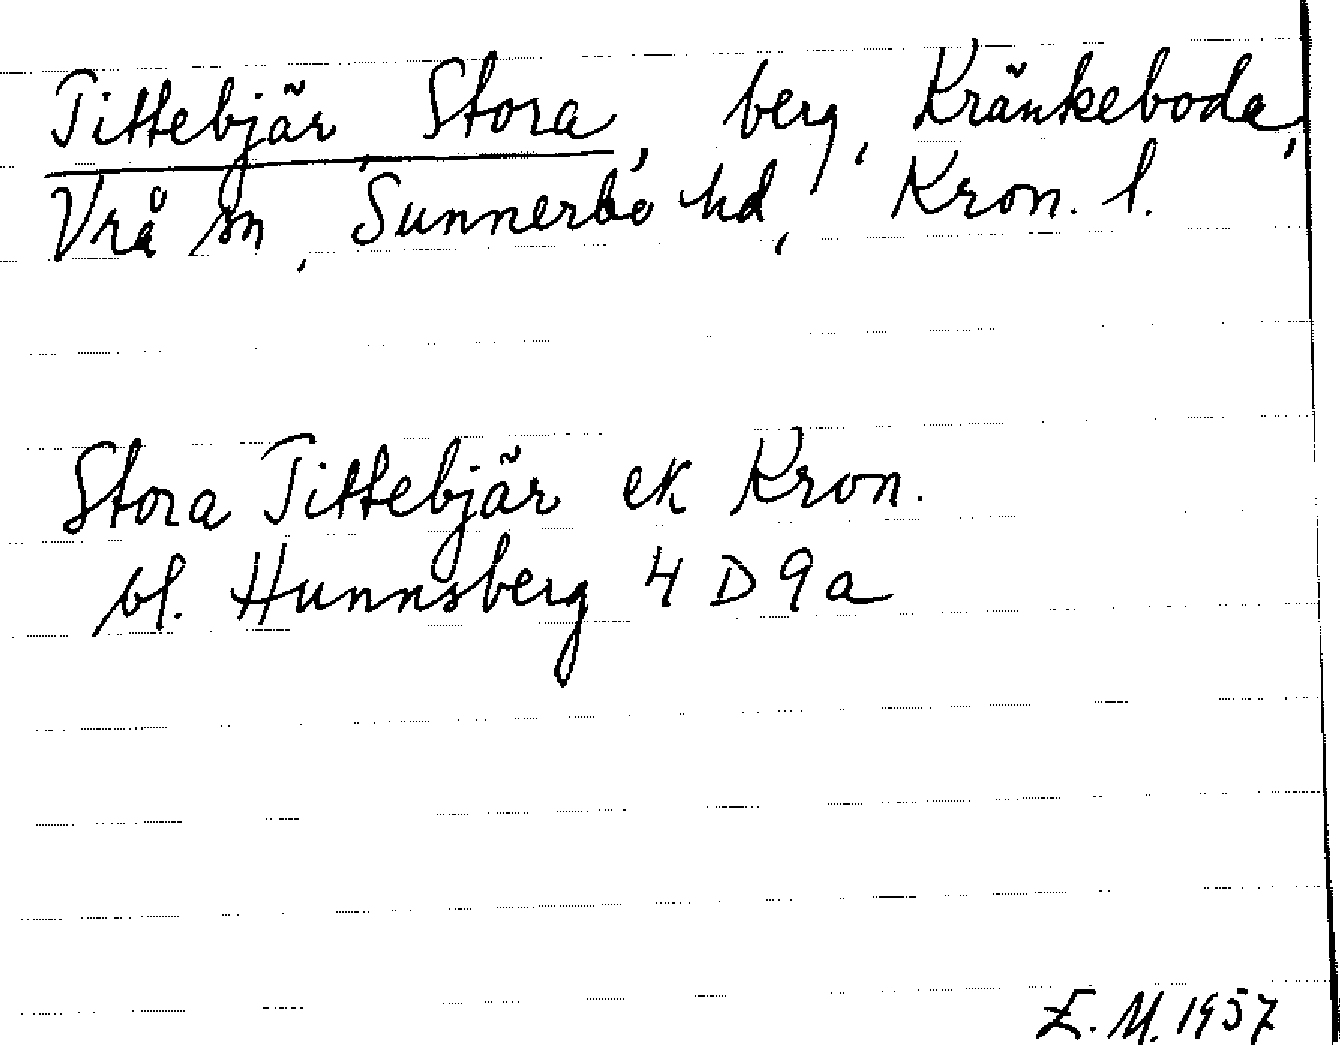 Tittebjär, Stora, berg, Kränkeboda,
Vrå sn, Sunnerbo hd, Kron. l.
Stora Tittebjär ek Kron.
bl. Hunnsberg 4 D 9 a
E. M. 1957